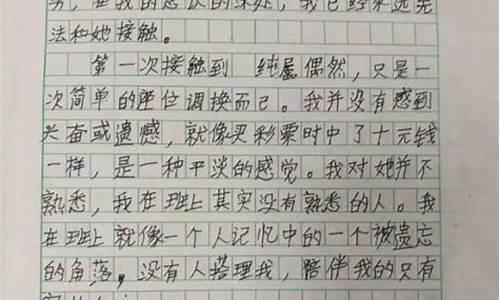 法和她接触。
第一次接触到 纯属偶然，只是一
次简单的座位调换而已。我并没有感到
兴奋或遗憾，就像买彩票时中了十元钱
一样，是一种平淡的感觉。我对她并不
熟悉，我在班上其实没有熟悉的人。我
在班上就像一个人记忆中的一个被遗忘
的角落，没有人搭理我，陪伴我的只有